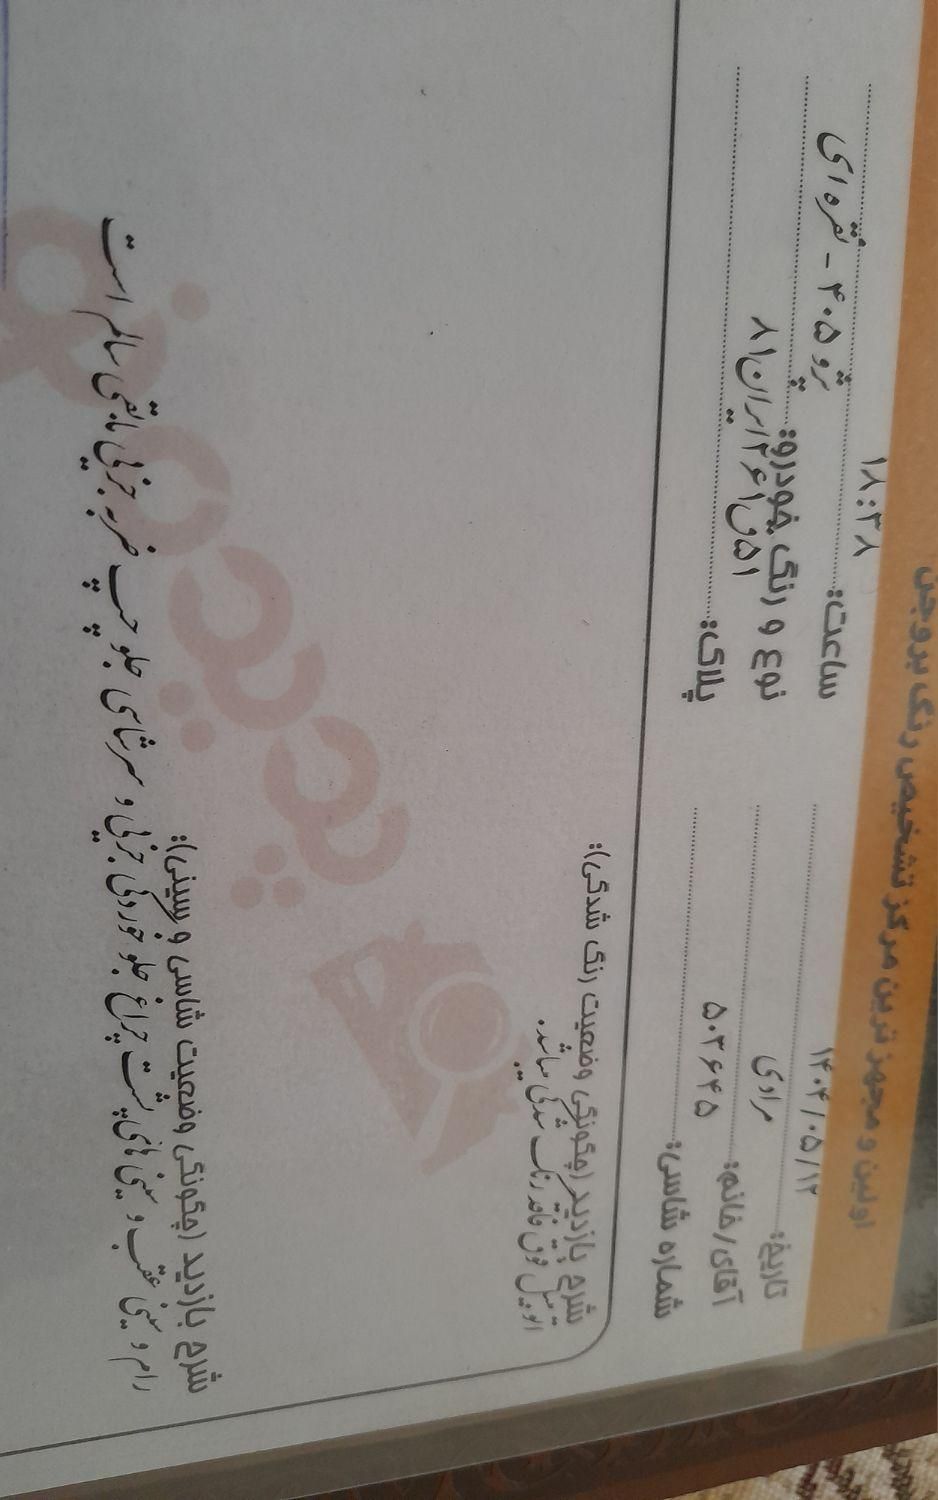 اولین و مجهز ترین مرکز تشخیص رنگ بروجن
تاریخ: ۱۴۰۴/۰۵/۱۲
ساعت: ۱۸:۳۸
آقای/خانم: مرادی
نوع و رنگ خودرو: پژو ۴۰۵ - نقره ای
شماره شاسی: ۵۰۳۶۴۵
پلاک: ۵۱ق۲۶۱ایران۸۱
شرح بازدید (چگونگی وضعیت رنگ شدگی):
اتومبیل فوق فاقد رنگ شدگی میباشد.
شرح بازدید (چگونگی وضعیت شاسی و سینی):
رام و سینی عقب و سینی های پشت چراغ جلو خوردگی جزئی و سرشاسی جلو چپ ضربه جزئی مابقی سالم است